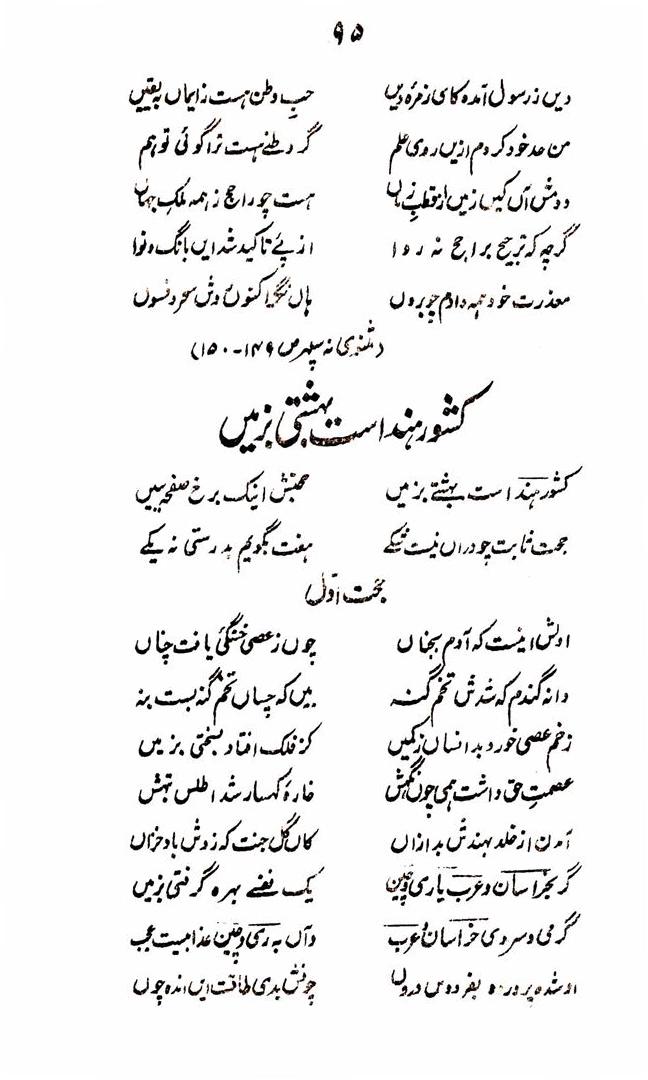 ۹۵
دیں ز رسول آمده کای زمرهٔ دیں حبِ وطن هست ز ایماں به یقیں
من حد خود کردم ازیں روی علم گر وطنے هست ترا گوئی تو هم
آں کیں زمیں از هست چو راجح ز همه ملکِ جهاں
گرچه که ترجیح براجح نه روا از پئے تاکید شد ایں بانگ و نوا
معذرت خود همه دادم چو بروں هاں اکنوں
(مثنوی نه سپهر ص ۱۴۹-۱۵۰)
کشور هند است بهشتی بزمیں
کشور هند است بهشتے بزمیں حجتش اینک برخ صفحه ببیں
حجت ثابت چو دراں نیست شکے هفت بگویم بدرستی نه یکے
حجت اوّل
اولش اینست که آدم بجناں چوں ز عصی خستگئ یافت چناں
دانه گندم که شدش تخم گنه بیں که چساں تخم گنه بست بنه
زخم عصی خورد بد انساں ز کمیں کز فلک افتاد بسختی بزمیں
عصمتِ حق داشت همی چوں نگهش خارهٔ کهسار شد اطلس تهش
آمدن از خلد بهندش بد ازاں کاں گل جنت که زدش باد خزاں
گر بخراسان و عرب یاری و چین یک نفسے بهره گرفتی بزمیں
گرمی و سردی خراسان و عرب واں به ری و چین عذابیست عجب
او شده پرورده بفردوس دروں چونش بدی طاقت ایں اندہ چوں